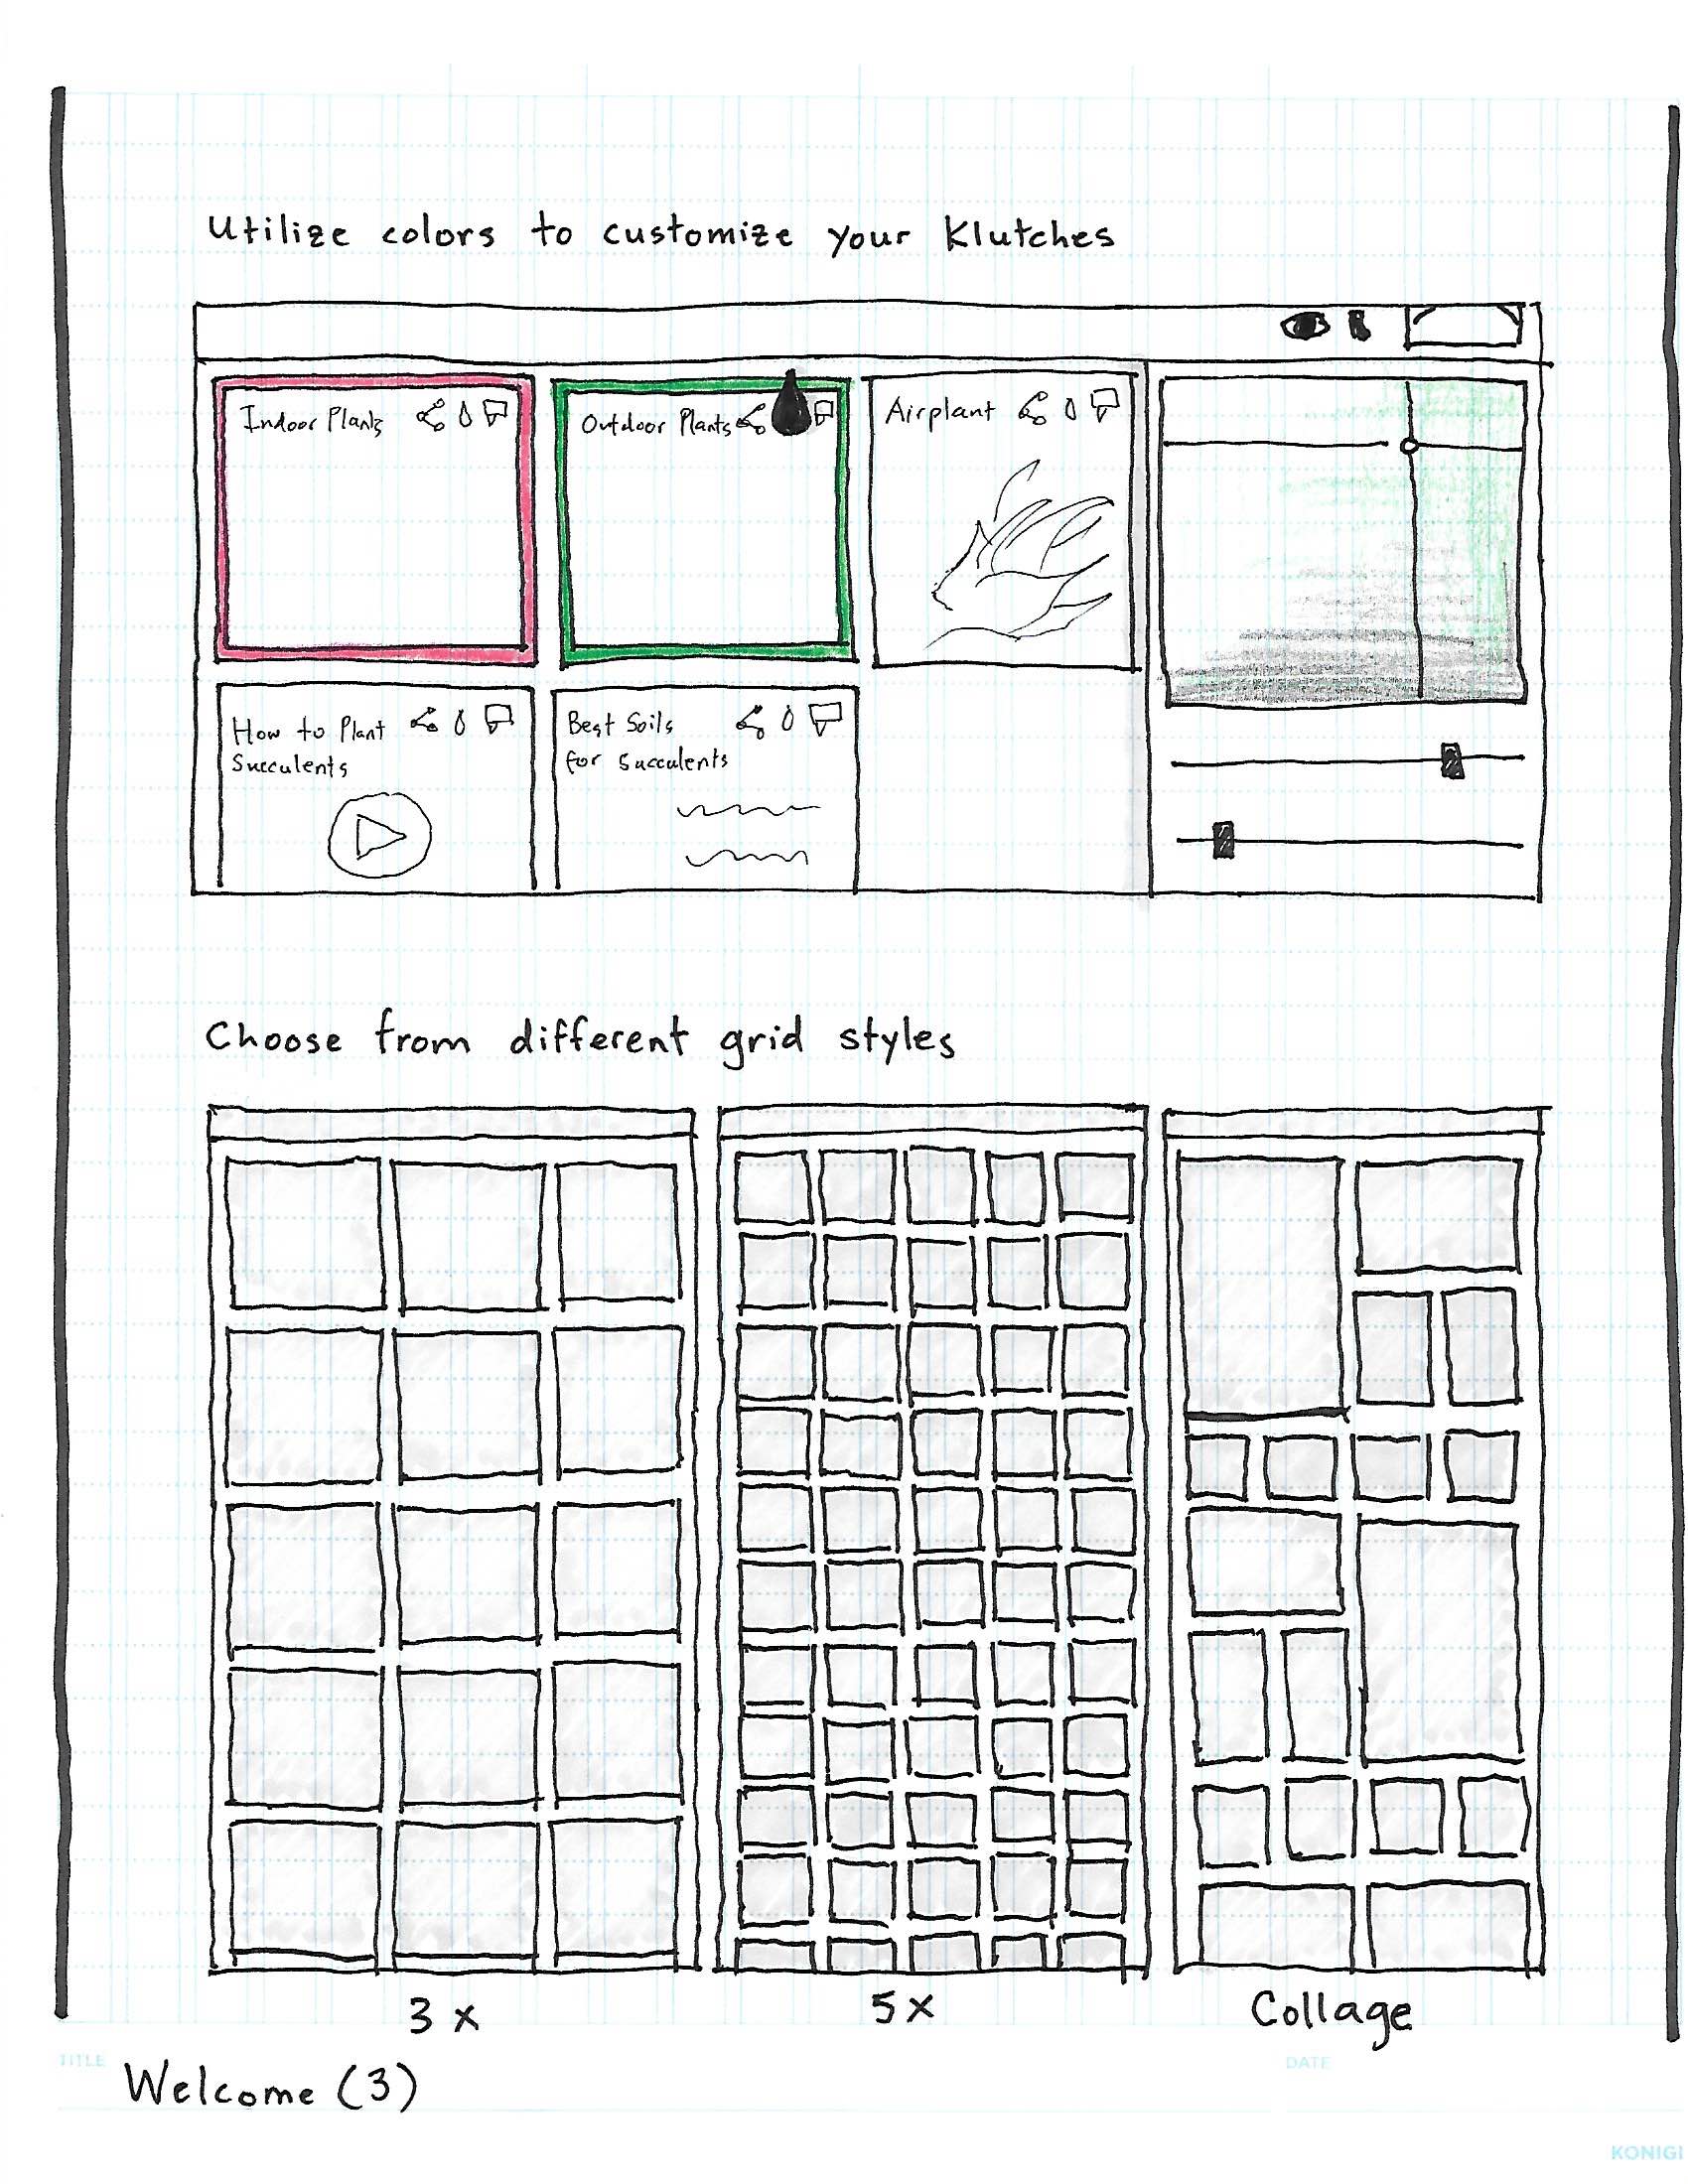 Utilize colors to customize your Klutches
Indoor Plants
Outdoor Plants
Airplant
How to Plant
Succulents
Best Soils
for Succulents
Choose from different grid styles
3 x
5 x
Collage
TITLE
DATE
Welcome (3)
KONIGI